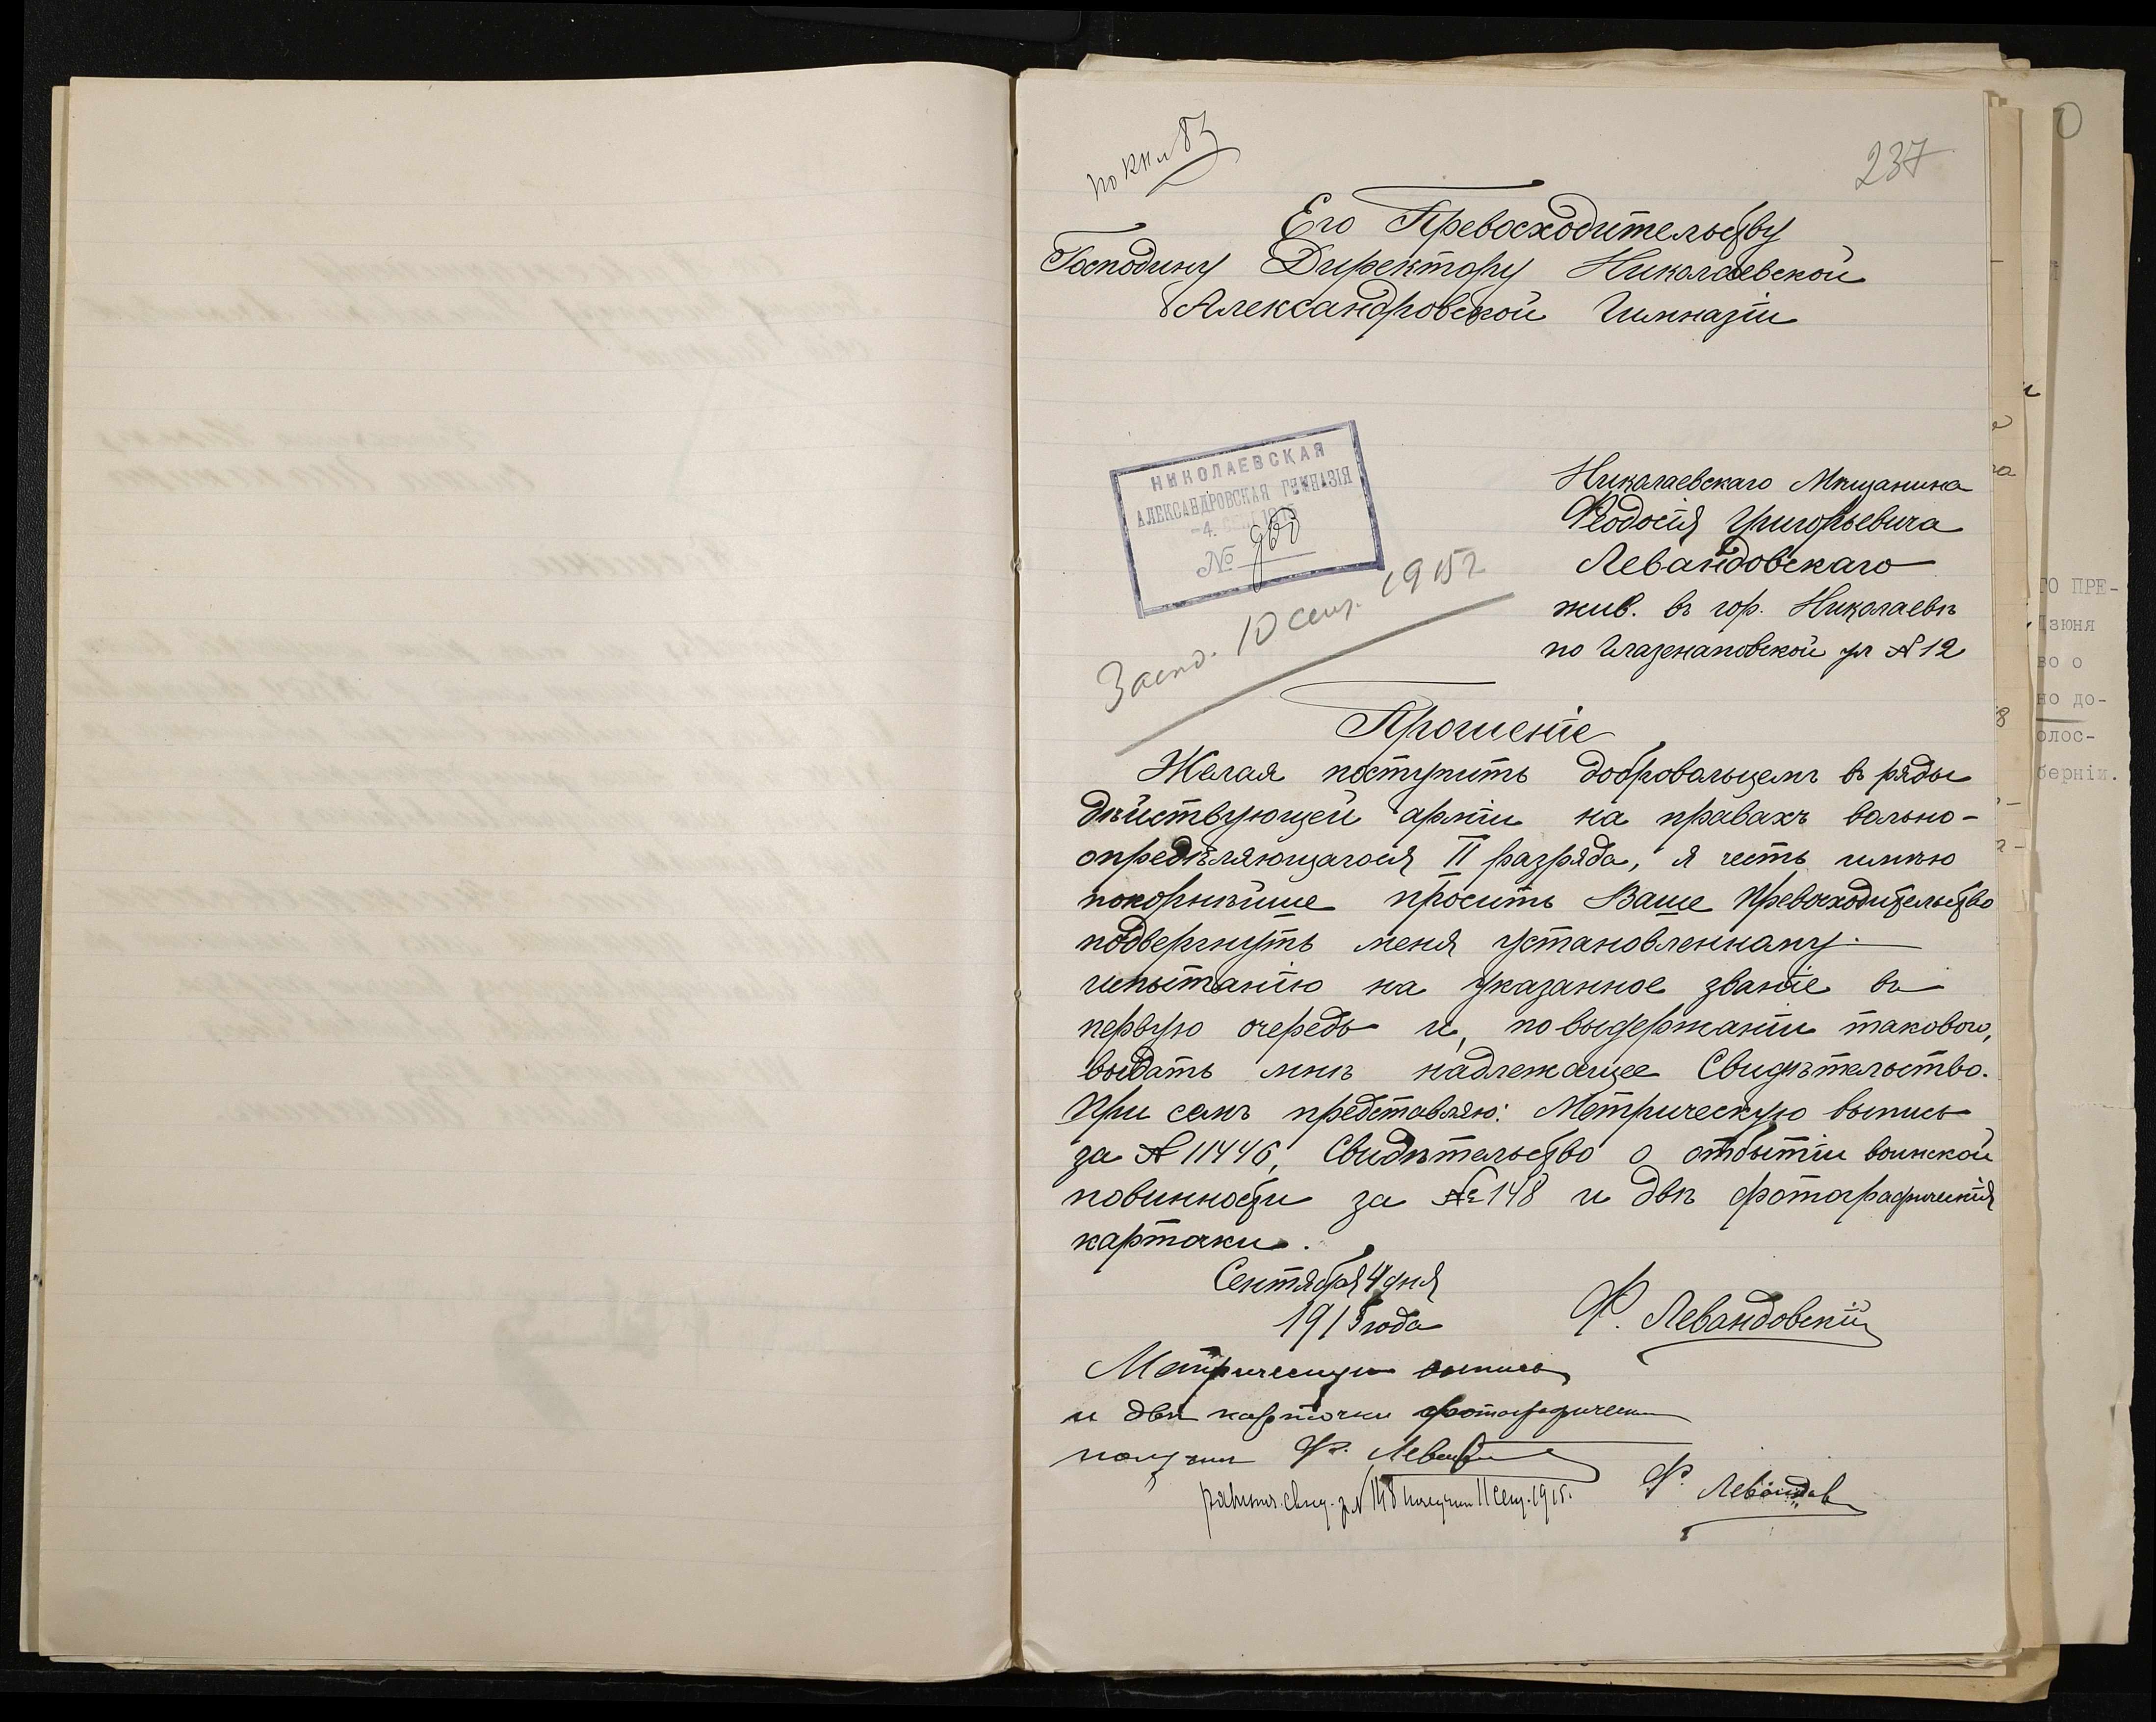 по кн. № 83
237
Его Превосходительству
Господину Директору Николаевской
Александровской Гимназіи
НИКОЛАЕВСКАЯ
АЛЕКСАНДРОВСКАЯ ГИМНАЗІЯ
-4. СЕН 1915
№ 960
Николаевскаго Мѣщанина
Ѳеодосія Григорьевича
Левандовскаго
жив. въ гор. Николаевѣ
по Глазенаповской ул № 12
10 сент. 1915 г
Прошеніе
Желая поступить добровольцемъ въ ряды
дѣйствующей арміи на правахъ вольно-
опредѣляющагося II разряда, я честь имѣю
покорнѣйше просить Ваше Превосходительство
подвергнуть меня установленному
испытанію на указанное званіе въ
первую очередь и, по выдержаніи такового,
выдать мнѣ надлежащее Свидѣтельство.
При семъ представляю: Метрическую выпись
за № 11446, Свидѣтельство о отбытіи воинской
повинности за № 148 и двѣ фотографическія
карточки.
Сентября 4 дня
1915 года
Ф. Левандовскій
Метрическую выпись
и двѣ карточки фотографическ
получил Ф. Леванд
свид. за № 148 получил 11 сент. 1915.
Ф. Левандов
ГО ПРЕ-
Дзюня
во о
но до-
олос-
берніи.